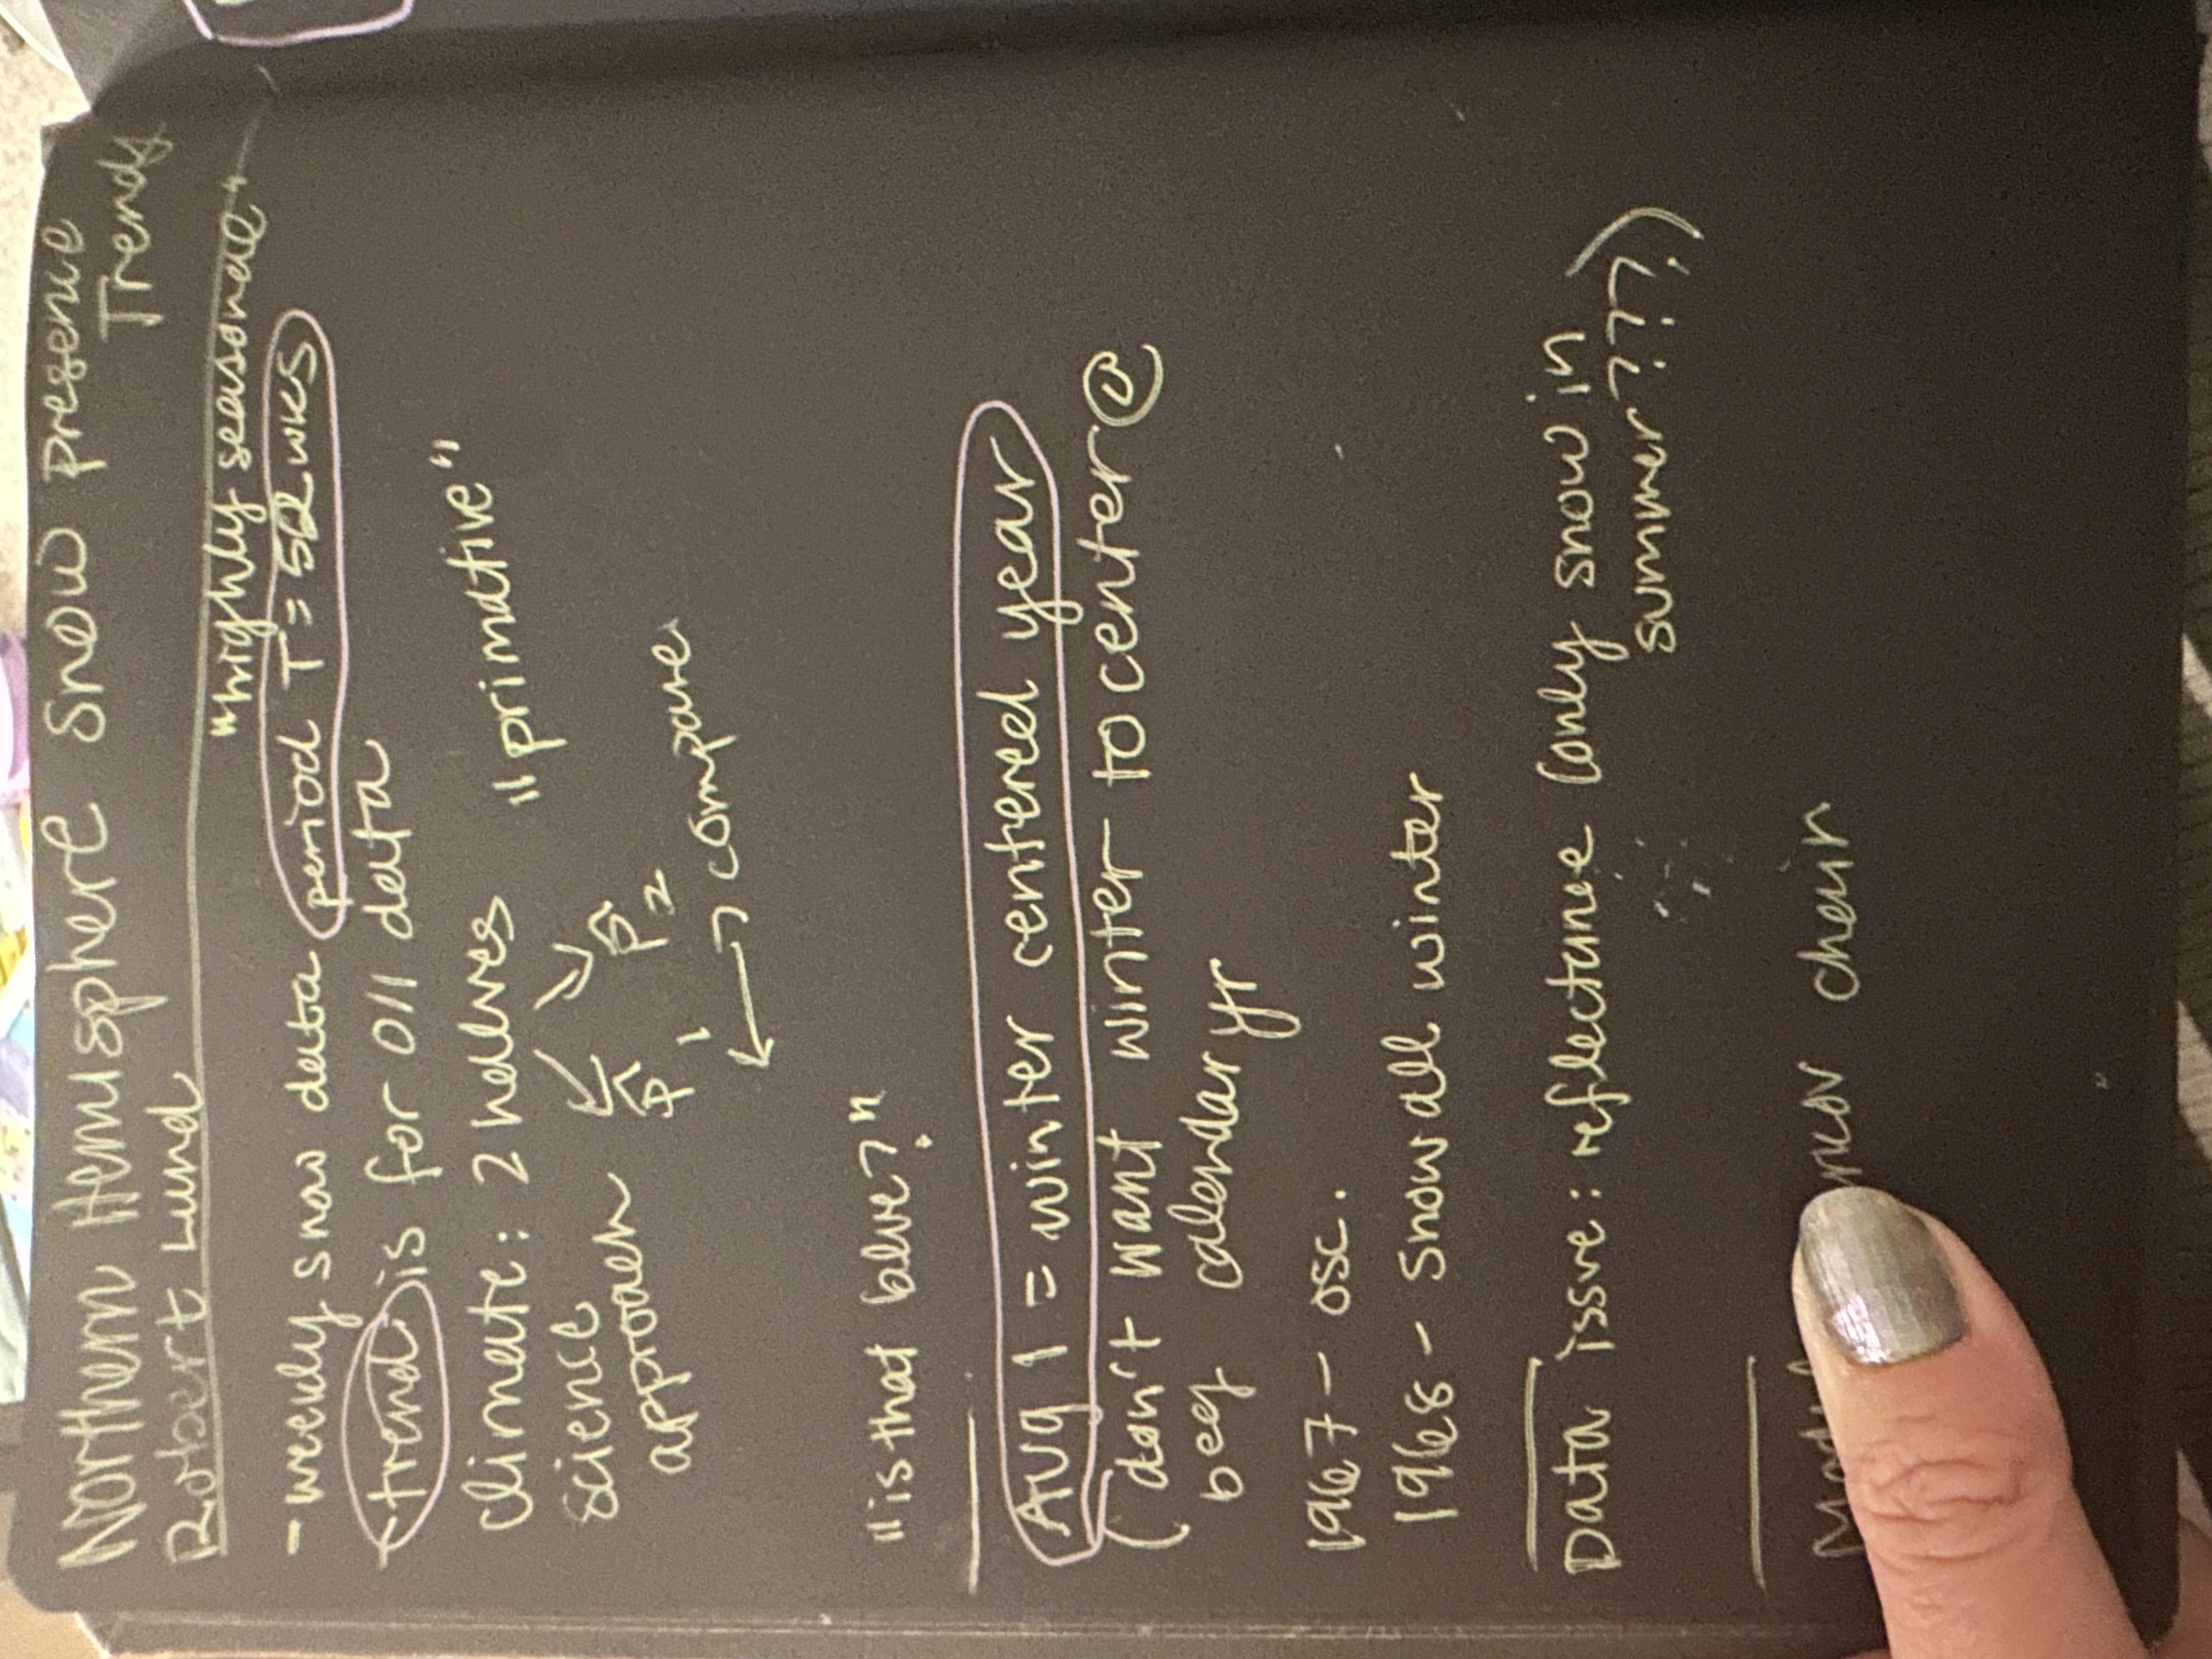 Northern Hemisphere Snow presence
Trends
Robert Lund
"highly seasonal"
- weekly snow data period T = 52 wks
- trend is for 0/1 data
climate: 2 halves "primative"
science
approach p̂1 p̂2
←→ compare
"is that blue?"
Aug 1 = winter centered year
(don't want winter to center @
beg calendar yr
1967 - osc.
1968 - snow all winter
Data issue: reflectance (only snow in
summer???)
chain